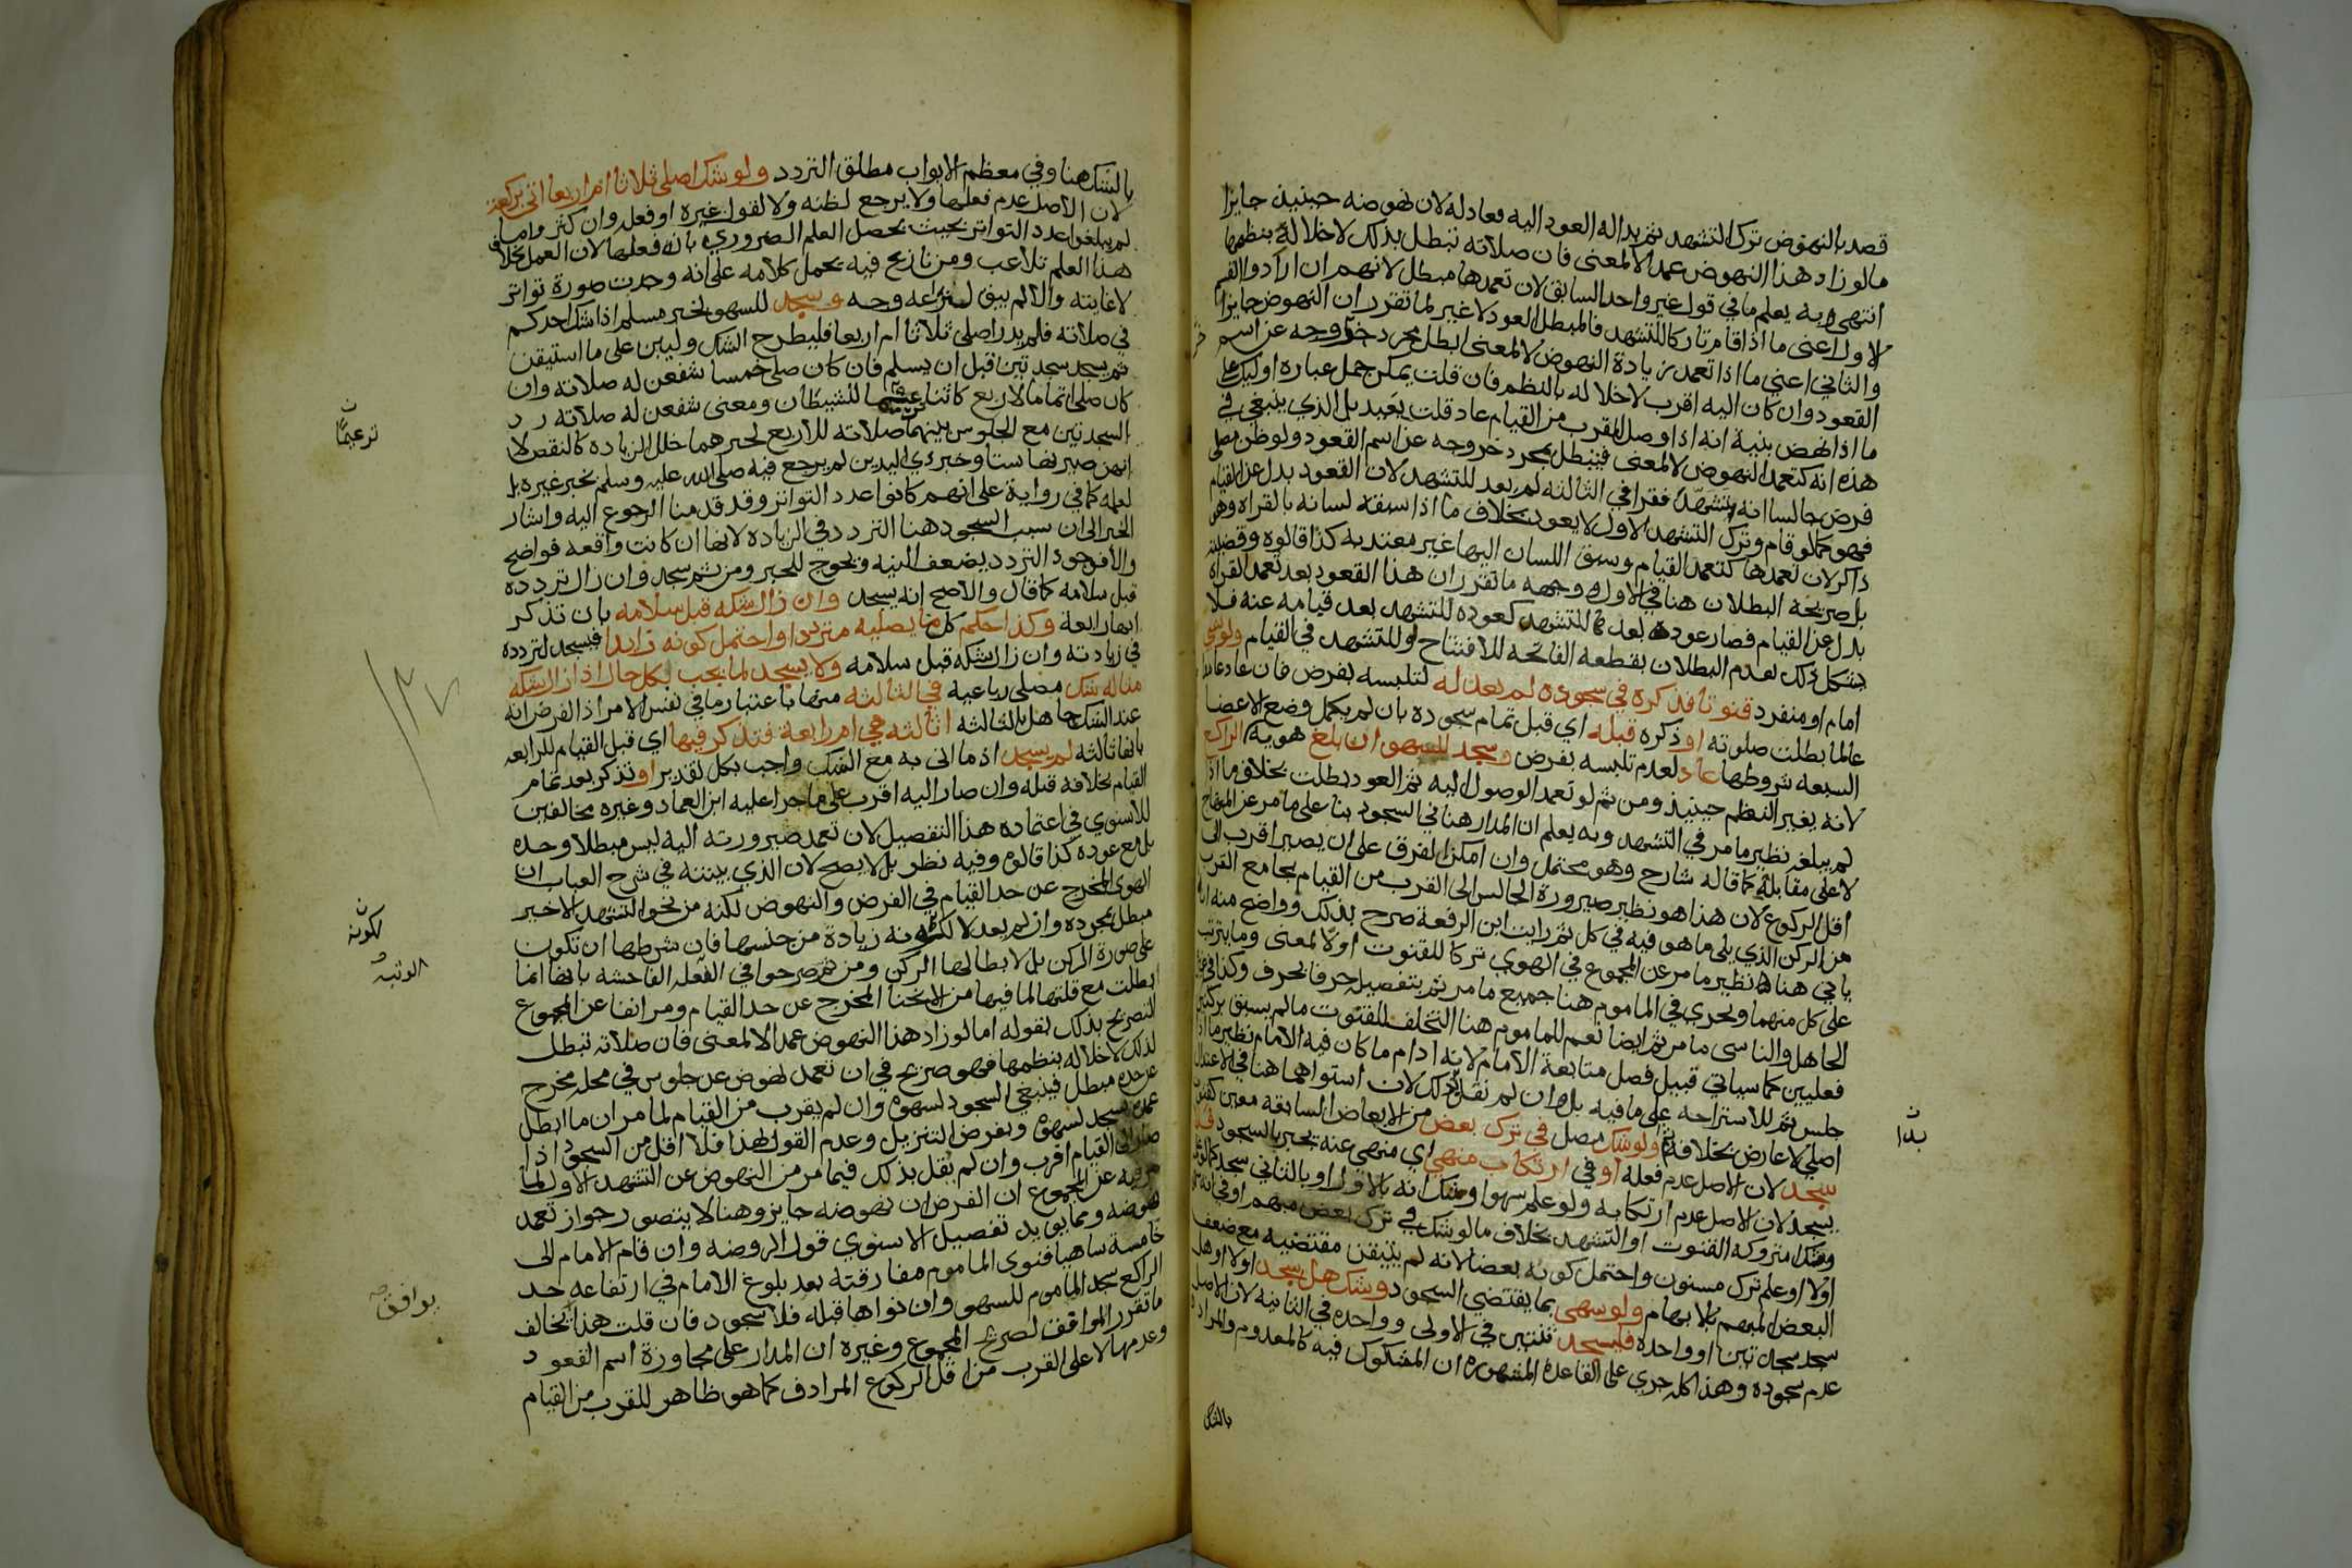 قصد بالنهوض ترك التشهد ثم بدا له العود اليه فعاد له لان نهوضه حينيذ جايزا
مالو زاد هذا النهوض عمدا لا لمعنى فان صلاته تبطل بذلك لاخلاله بنظمها
انتهى وبه يعلم ما في قول غير واحد السابق لان تعمدها مبطل لانهم ان ارادوا القسم
الاول اعني ما اذا قام تاركا للتشهد فالمبطل العود لا غير لما تقرر ان النهوض جايزا
والثاني اعني ما اذا تعمد زيادة النهوض لا لمعنى ابطل بمجرد خروجه عن اسم
القعود وان كان اليه اقرب لاخلاله بالنظم فان قلت يمكن حمل عباره اوليك على
ما اذا نهض بنية انه اذا وصل للقرب من القيام عاد قلت بعيد بل الذي ينبغي في
هذه انه كتعمد النهوض لا لمعنى فيبطل بمجرد خروجه عن اسم القعود ولو ظن مصلي
فرض جالسا انه تشهد فقرا في الثالثه لم يعد للتشهد لان القعود بدل عن القيام
فهو كما لو قام وترك التشهد الاول لا يعود بخلاف ما اذا سبقه لسانه بالقراه وهو
ذاكر لان تعمدها كتعمد القيام وسبق اللسان اليها غير معتد به كذا قالوه وقضيته
بل صريحه البطلان هنا في الاول ووجهه ما تقرر ان هذا القعود بعد تعمد القراه
بدل عن القيام فصار عوده للتشهد كعوده للتشهد بعد قيامه عنه فلا
يشكل ذلك بعدم البطلان بقطعه الفاتحه للافتتاح او للتشهد في القيام ولو نسي
امام او منفرد قنوتا فذكره في سجوده لم يعد له لتلبسه بفرض فان عاد عامدا
عالما بطلت صلوته او ذكره قبله اي قبل تمام سجوده بان لم يكمل وضع الاعضا
السبعه شروطها عاد لعدم تلبسه بفرض ويسجد للسهو ان بلغ هويه الراكع
لانه يغير النظم حينيذ ومن ثم لو تعمد الوصول اليه ثم العود بطلت بخلاف ما اذا
لم يبلغه نظير ما مر في التشهد وبه يعلم ان المدار هنا في السجود بنا على ما مر عن المنهاج
لا على مقابله كما قاله شارح وهو محتمل وان امكن الفرق على ان يصير اقرب الى
اقل الركوع لان هذا هو نظير صيرورة الجالس الى القرب من القيام بجامع القرب
من الركن الذي يلي ما هو فيه في كل ثم رايت ابن الرفعة صرح بذلك وواضح منه انه
ياتي هنا نظير ما مر عن المجموع في الهوي تركا للقنوت او لا لمعنى وما يترتب
على كل منهما ويجري في الماموم هنا جميع ما مر ثم بتفصيله حرفا بحرف وكذا في
الجاهل والناسي ما مر ثم ايضا نعم للماموم هنا التخلف للقنوت ما لم يسبق بركنين
فعليين كما سياتي قبيل فصل متابعة الامام لانه ادام ما كان فيه الامام نظير ما اذا
جلس ثم للاستراحه على ما فيه بل وان لم نقل بذلك لان استواهما هنا في الاعتدال
اصلي لا عارض بخلافه ثم ولو شك مصل في ترك بعض من الابعاض السابقه معين كقنوت
سجد لان الاصل عدم فعله او في ارتكاب منهي اي منهي عنه يجبر بالسجود فلا
يسجد لان الاصل عدم ارتكابه ولو علم سهوا وشك انه بالاول او بالثاني سجد كما لو
وشك امتروكه القنوت او التشهد بخلاف ما لو شك في ترك بعض مبهم او في انه
اولا او علم ترك مسنون واحتمل كونه بعضا لانه لم يتيقن مقتضيه مع ضعف
البعض المبهم بالابهام ولو سهى بما يقتضي السجود وشك هل سجد اولا او هل
سجد سجدتين او واحده فليسجد ثنتين في الاولى وواحده في الثانيه لان الاصل
عدم سجوده وهذا كله جري على القاعدة المشهوره ان المشكوك فيه كالمعدوم والمراد
بالشك
بدا
بالشك هنا وفي معظم الابواب مطلق التردد ولو شك اصلى ثلاثا ام اربعا اتى بركعة
لان الاصل عدم فعلها ولا يرجع لظنه ولا لقول غيره او فعله وان كثروا ما
لم يبلغوا عدد التواتر بحيث يحصل العلم الضروري بانه فعلها لان العمل بخلاف
هذا العلم تلاعب ومن نازع فيه يحمل كلامه على انه وجدت صورة تواتر
لا غايته والا لم يبق لنزاعه وجه وسجد للسهو لخبر مسلم اذا شك احدكم
في صلاته فلم يدر اصلى ثلاثا ام اربعا فليطرح الشك وليبن على ما استيقن
ثم يسجد سجدتين قبل ان يسلم فان كان صلى خمسا شفعن له صلاته وان
كان صلى اتماما لاربع كانتا للشيطان ومعنى شفعن له صلاته رد
السجدتين مع الجلوس بينهما صلاته للاربع لجبرهما خلل الزياده كالنقص لا
انهن صيرنها ستا وخبر ذي اليدين لم يرجع فيه صلى الله عليه وسلم لخبر غيره بل
لعلمه كما في رواية على انهم كانوا عدد التواتر وقد قدمنا الرجوع اليه واشار
الخبر الى ان سبب السجود هنا التردد في الزياده لانها ان كانت واقعه فواضح
والا فوجود التردد يضعف النيه ويحوج للجبر ومن ثم سجد وان زال تردده
قبل سلامه كما قال والاصح انه يسجد وان زال شكه قبل سلامه بان تذكر
انها رابعة وكذا حكم كل ما يصليه مترددا واحتمل كونه زايدا فيسجد لتردده
في زيادته وان زال شكه قبل سلامه ولا يسجد لما يجب بكل حال اذا زال شكه
مثاله شك مصلي رباعيه في الثالثه منها باعتبار ما في نفس الامر اذ الفرض انه
عند الشك جاهل بالثالثه اثالثه هي ام رابعة فتذكر فيها اي قبل القيام للرابعه
بانها ثالثه لم يسجد اذ ما اتى به مع الشك واجب بكل تقدير او تذكر بعد تمام
القيام بخلافه قبله وان صار اليه اقرب على ما جرا عليه ابن العماد وغيره مخالفين
للاسنوي في اعتماده هذا التفصيل لان تعمد صيرورته اليه ليس مبطلا وحده
بل مع عوده كذا قالوه وفيه نظر بل لا يصح لان الذي بينته في شرح العباب ان
الهوي المخرج عن حد القيام في الفرض والنهوض لكنه من نحو التشهد الاخير
مبطل بمجرده وان لم يعد لا لكونه زيادة من جنسها فان شرطها ان تكون
على صورة الركن بل لابطالها الركن ومن ثم صرحوا في الفعله الفاحشه بانها انما
ابطلت مع قلتها لما فيها من الانحنا المخرج عن حد القيام ومر انفا عن المجموع
التصريح بذلك بقوله اما لو زاد هذا النهوض عمدا لا لمعنى فان صلاته تبطل
لذلك لاخلاله بنظمها فهو صريح في ان تعمد نهوض عن جلوس في محله مخرج
عن حده مبطل فينبغي السجود لسهوه وان لم يقرب من القيام لما مر ان ما ابطل
عمده سجد لسهوه وبفرض التنزيل وعدم القول بهذا فلا اقل من السجود اذا
صار الى القيام اقرب وان لم نقل بذلك فيما مر من النهوض عن التشهد الاول لما
عن المجموع ان الفرض ان نهوضه جايز وهنا لا يتصور جواز تعمد
نهوضه ومما يويد تفصيل الاسنوي قول الروضه وان قام الامام الى
خامسة ساهيا فنوى الماموم مفارقته بعد بلوغ الامام في ارتفاعه حد
الراكع سجد الماموم للسهو وان نواها قبله فلا سجود فان قلت هذا يخالف
ما تقرر الموافق لصريح المجموع وغيره ان المدار على مجاوزة اسم القعود
وعدمها لا على القرب من اقل الركوع المرادف كما هو ظاهر للقرب من القيام
ترغيما
١٣٧
لكونه
يوافق